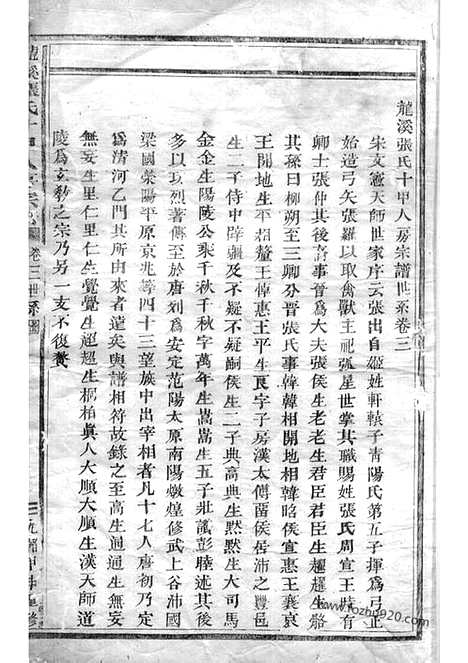 龍溪張氏十甲人房宗譜世系卷三
宋文憲天師世家序云張出自姬姓軒轅子青陽氏第五子揮爲弓正
始造弓矢張羅以取禽獸主祀弧星世掌其職賜姓張氏周宣王時有
卿士張仲其後裔事晉爲大夫張侯生老老生君臣君臣生趯趯生骼
其孫曰柳朔至三卿分晉張氏事韓韓相開地相韓昭侯宣惠王襄哀
王開地生平相釐王悼惠王平生良字子房漢太傅留侯居沛之豐邑
生二子侍中辟疆及不疑不疑嗣侯生二子高典生默默生大司馬
金金生陽陵公乘千秋千秋字萬年生嵩嵩生五子壯讚彭睦述其後
多以功烈著傳至於唐列爲安定范陽太原南陽燉煌修武上谷沛國
梁國滎陽平原京兆等四十三望族中出宰相者凡十七人唐初乃定
爲清河乙門其所由來遠矣與譜相符故錄之至高生通通生無妄
無妄生里仁里仁生覺覺生超超生桐柏眞人大順大順生漢天師道
陵爲玄敎之宗乃另一支不復贅
卷三世系圖
www.fozhu920.com